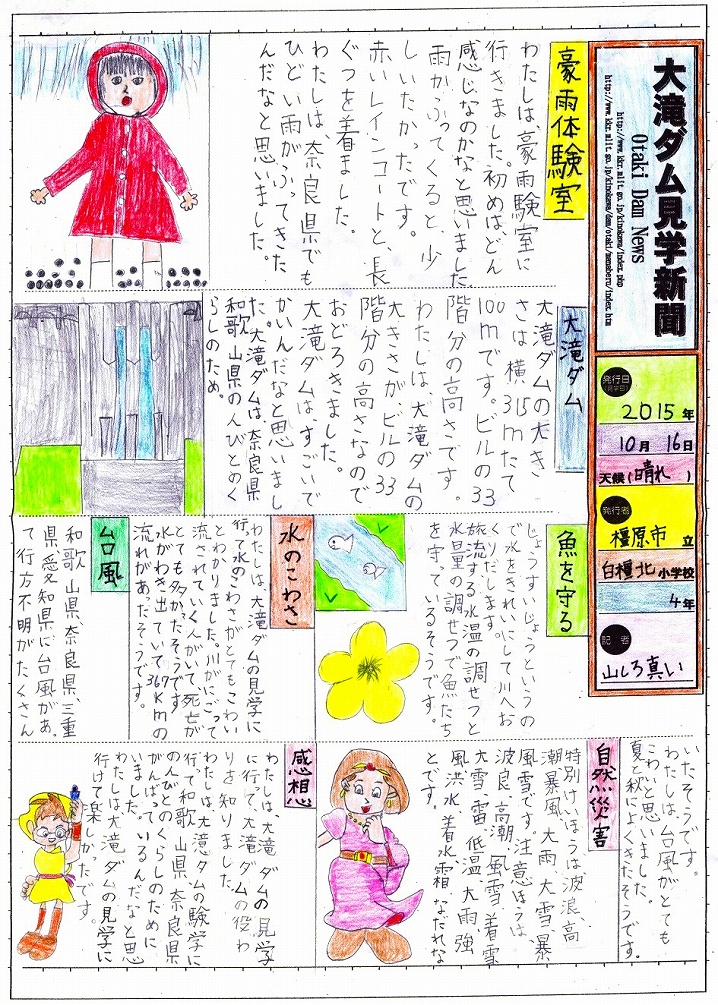 大滝ダム見学新聞
Otaki Dam News
http://www.kkr.mlit.go.jp/kinokawa/index.php
http://www.kkr.mlit.go.jp/kinokawa/dam/otaki/manaberu/index.htm
発行日
2015年
10月 16日
天候(晴れ)
発行者
橿原市 立
白橿北小学校
4年
記者
山しろ真い
豪雨体験室
わたしは、豪雨験室に
行きました。初めはどん
感じなのかなと思いました
雨がふってくると、少
しいたかったです。
赤いレインコートと、長
ぐつを着ました。
わたしは、奈良県でも
ひどい雨がふってきた
んだなと思いました。
大滝ダム
大滝ダムの大き
さは横315mたて
100mです。ビルの33
階分の高さです。
わたしは、大滝ダムの
大きさがビルの33
階分の高さなので
おどろきました。
大滝ダムはすごいで
かいんだなと思いまし
た。大滝ダムは奈良県
和歌山県の人びとのく
らしのため。
魚を守る
じょうすいじょうというの
で水をきれいにして川へお
くりだします。
放流する水温の調せつと
水量の調せつで魚たち
を守っているそうです。
水のこわさ
わたしは、大滝ダムの見学に
行って水のこわさがとてもこわい
とわかりました。川がにごって
流されていく人がいて死亡が
とても多かたそうです
水がわき出ていて36.7Kmの
流れがあたそうです。
台風
和歌山県、奈良県、三重
県、愛知県に台風があ。
て行方不明がたくさん
いたそうです。
わたしは、台風がとても
こわいと思いました。
夏と秋によくきたそうです。
自然災害
特別けいほうは波浪、高
潮、暴風、大雨、大雪、暴
風雪です。注意ほうは、
波良、高潮、風雪、着雪
大雪、雷、低温、大雨、強
風、洪水、着氷、霜、なだれな
とです。
感想
わたしは、大滝ダムの見学
に行って、大滝ダムの役わ
りを知りました。
わたしは、大滝タムの験学に
行て和歌山県、奈良県
の人びとのくらしのために
がんばっているんだなと思
いました。
わたしは大滝ダムの見学に
行けて楽しかったです。